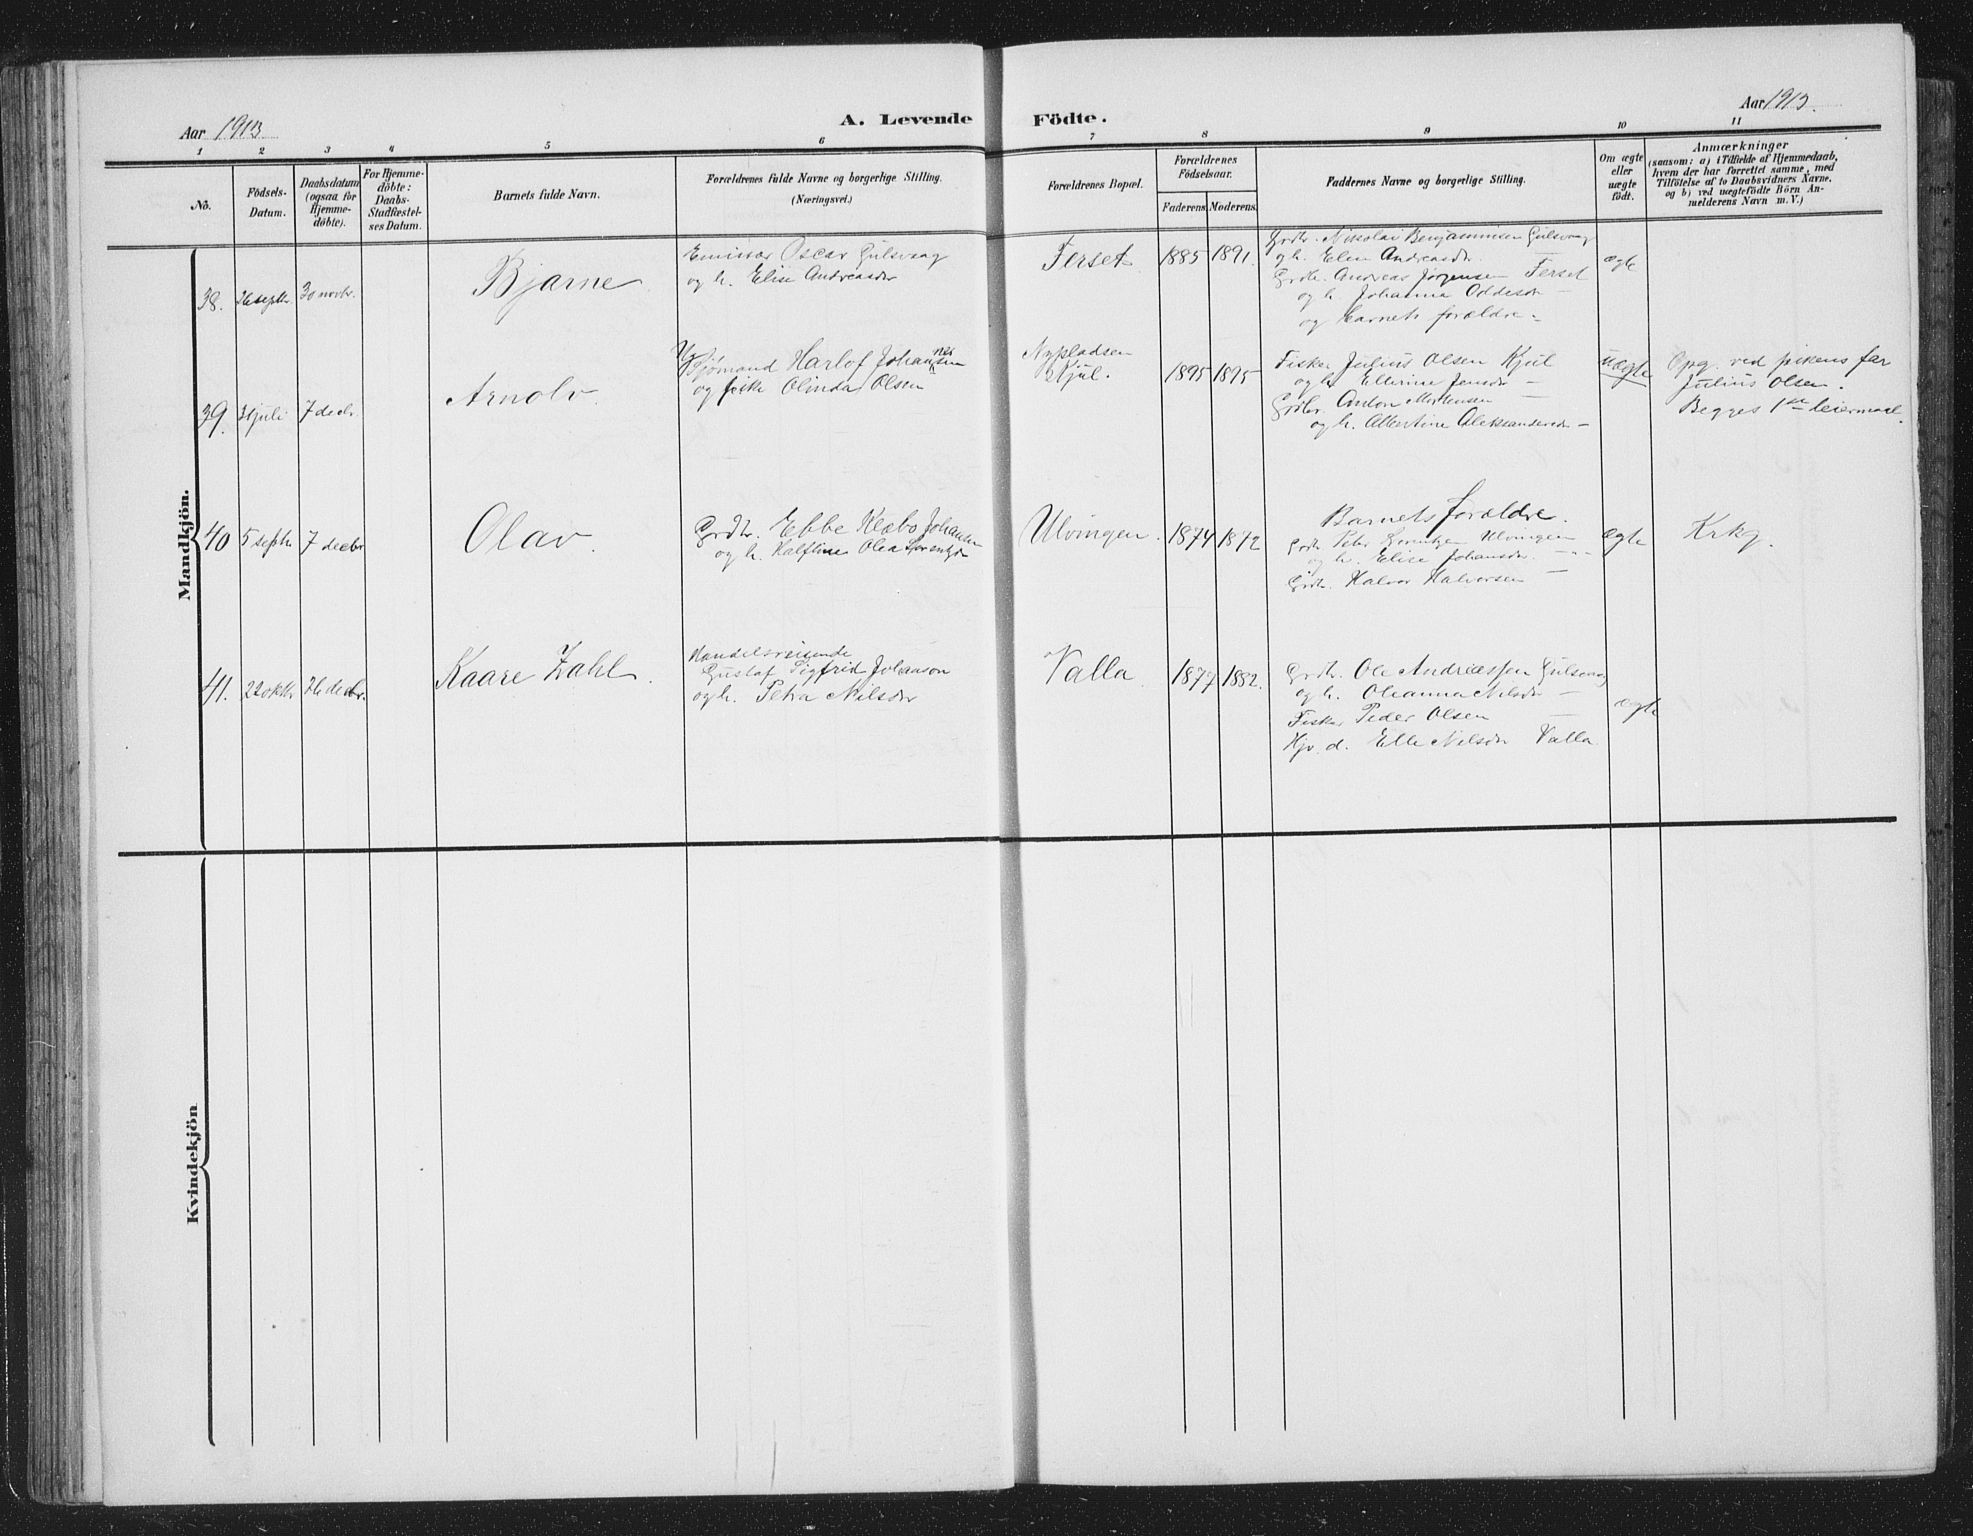 Aar 1913
A. Levende Födte.
Aar 1913.
1 2 3 4 5 6 7 8 9 10 11
No.
Födsels-
Datum.
Daabsdatum
(ogsaa for
Hjemme-
döbte).
For Hjemme-
döbte:
Daabs-
Stadfæstel-
ses Datum.
Barnets fulde Navn.
Forældrenes fulde Navne og borgerlige Stilling.
(Næringsvei.)
Forældrenes Bopæl.
Forældrenes
Födselsaar.
Faderens. Moderens.
Faddernes Navne og borgerlige Stilling.
Om ægte
eller
uægte
födt.
Anmærkninger
(saasom: a) i Tilfælde af Hjemmedaab,
hvem der har forrettet samme, med
Tilföielse af to Daabsvidners Navne.
og b) ved uægtefödte Börn An-
melderens Navn m. V.)
Mandkjön.
38. 26 septbr. 30 novbr.
Bjarne
Emissær Oscar Gulsvaag
og h. Elise Andreasdr
Ferset
1885 1891.
Grdbr. Nikolai Benjaminsen Gulsvaag
og h. Elen Andreasdr. —
Grdbr. Andreas Jørgensen Ferset
og h. Johanna Oddesdr —
og barnets forældre. —
ægte
39. 31 juli 7 decbr.
Arnolv.
Ug. Sjømand Harlof Johannessen
og pike Olinda Olsen
Nypladsen
Kjul.
1895 1895
Fisker Julius Olsen Kjul
og h. Ellerine Jensdr —
Grdbr. Anton Mortensen
og h. Albertine Aleksandersdr —
uægte
Opg. ved pikens far
Julius Olsen.
Begges 1ste leiermaal.
40 5 septbr 7 decbr
Olav.
Grdbr. Ebbe Klæbo Johansen
og h. Halfline Olea Lorentzdr
Ulvingen.
1874 1872
Barnets forældre.
Grdbr Peter Lorentzen Ulvingen
og h. Elise Johansdr. — " —
Grdbr. Halvor Halvorsen —
ægte
Krkg.
41. 22 oktbr 26 decbr.
Kaare Zahl.
Handelsreisende
Gustaf Sigfrid Johanson
og h. Petra Nilsdr
Valla
1877 1882.
Grdbr. Ole Andreassen Gulsvaag
og h. Olianna Nilsdr —
Fisker Peder Olsen —
Hjv. d. Elle Nilsdr Valla
ægte
Kvindekjön